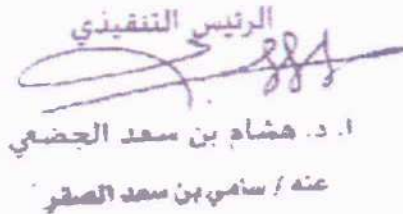 الرئيس التنفيذي
ا. د. هشام بن سعد الجضعي
عنه / سامي بن سعد الصقر